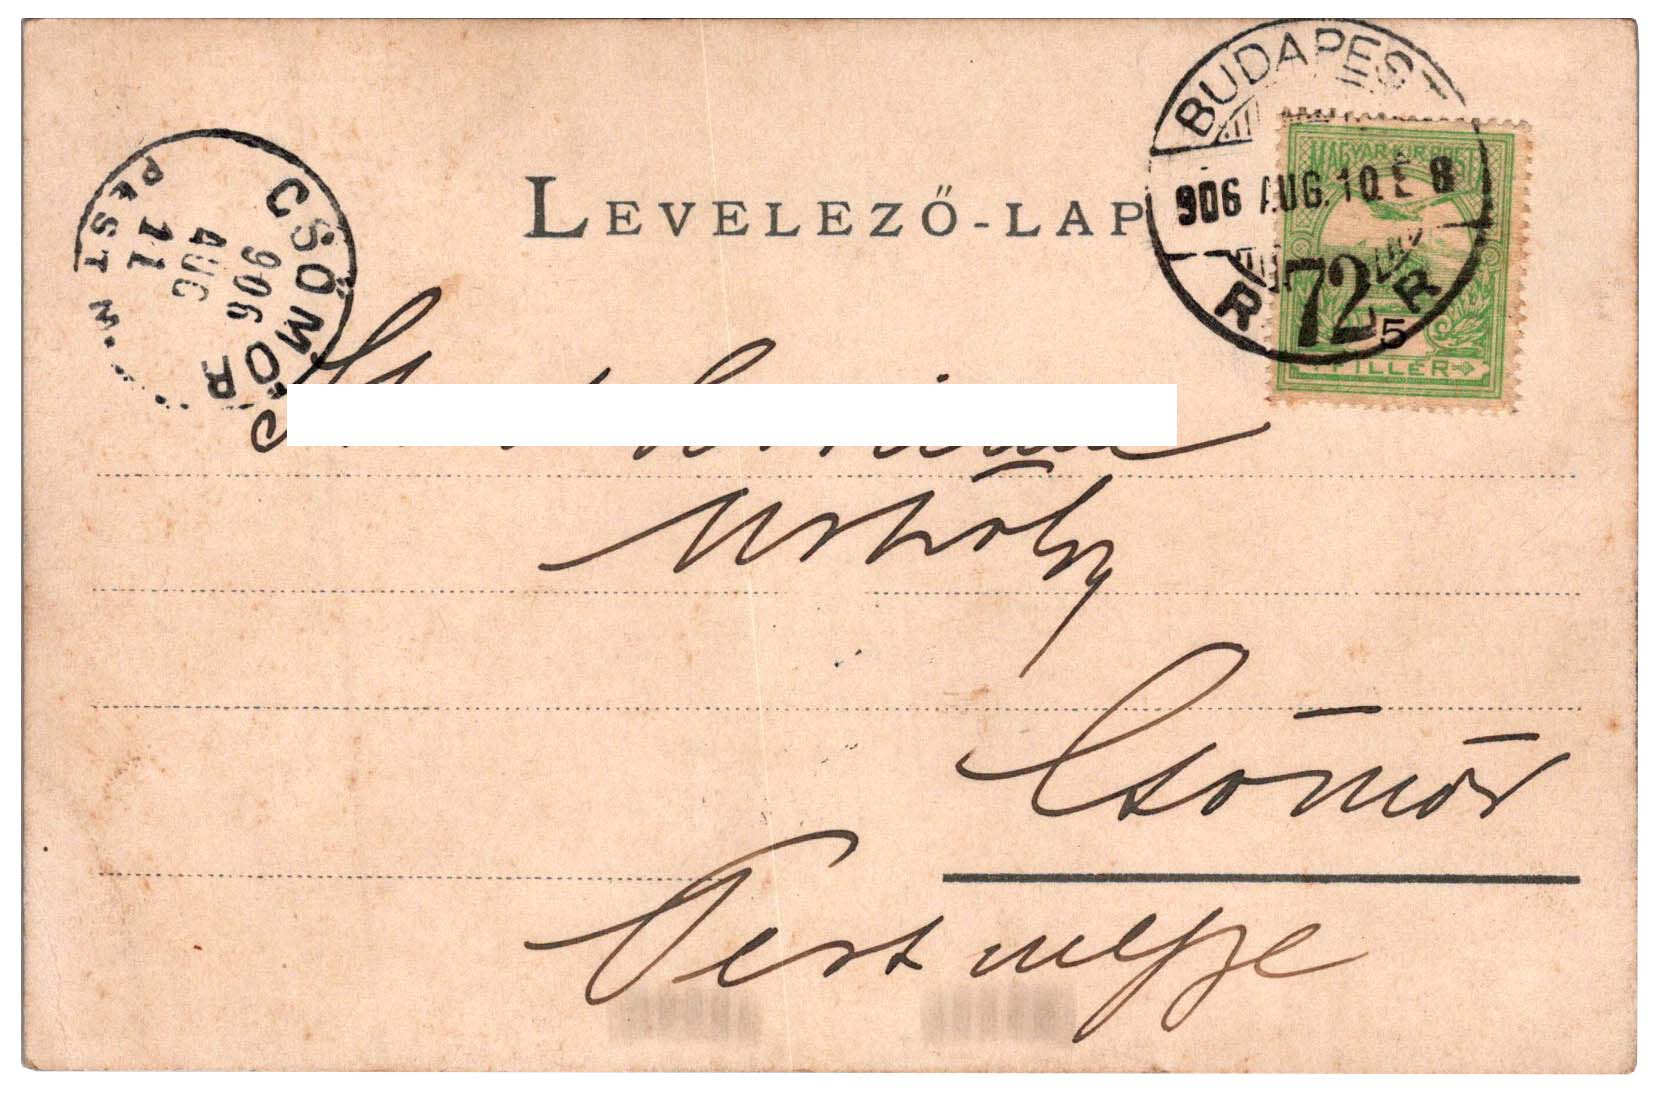 LEVELEZŐ-LAP
BUDAPEST
906 AUG. 10. E 8
R 72 R
MAGYAR KIR. POSTA
5
FILLÉR
CSÖMÖR
906
AUG
11
PEST M.
Urhölgy
Csömör
Pest megye